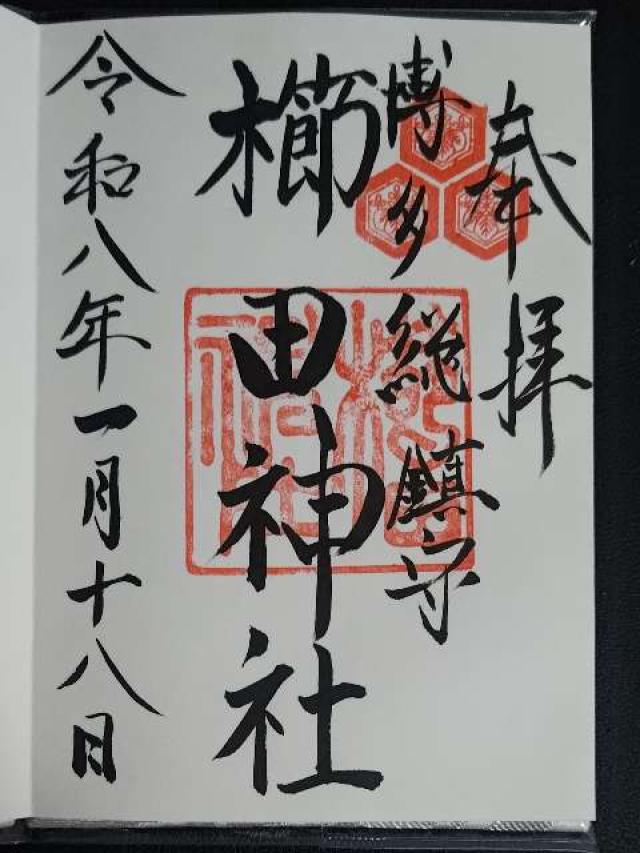 奉拝
博多総鎮守
櫛田神社
令和八年一月十八日